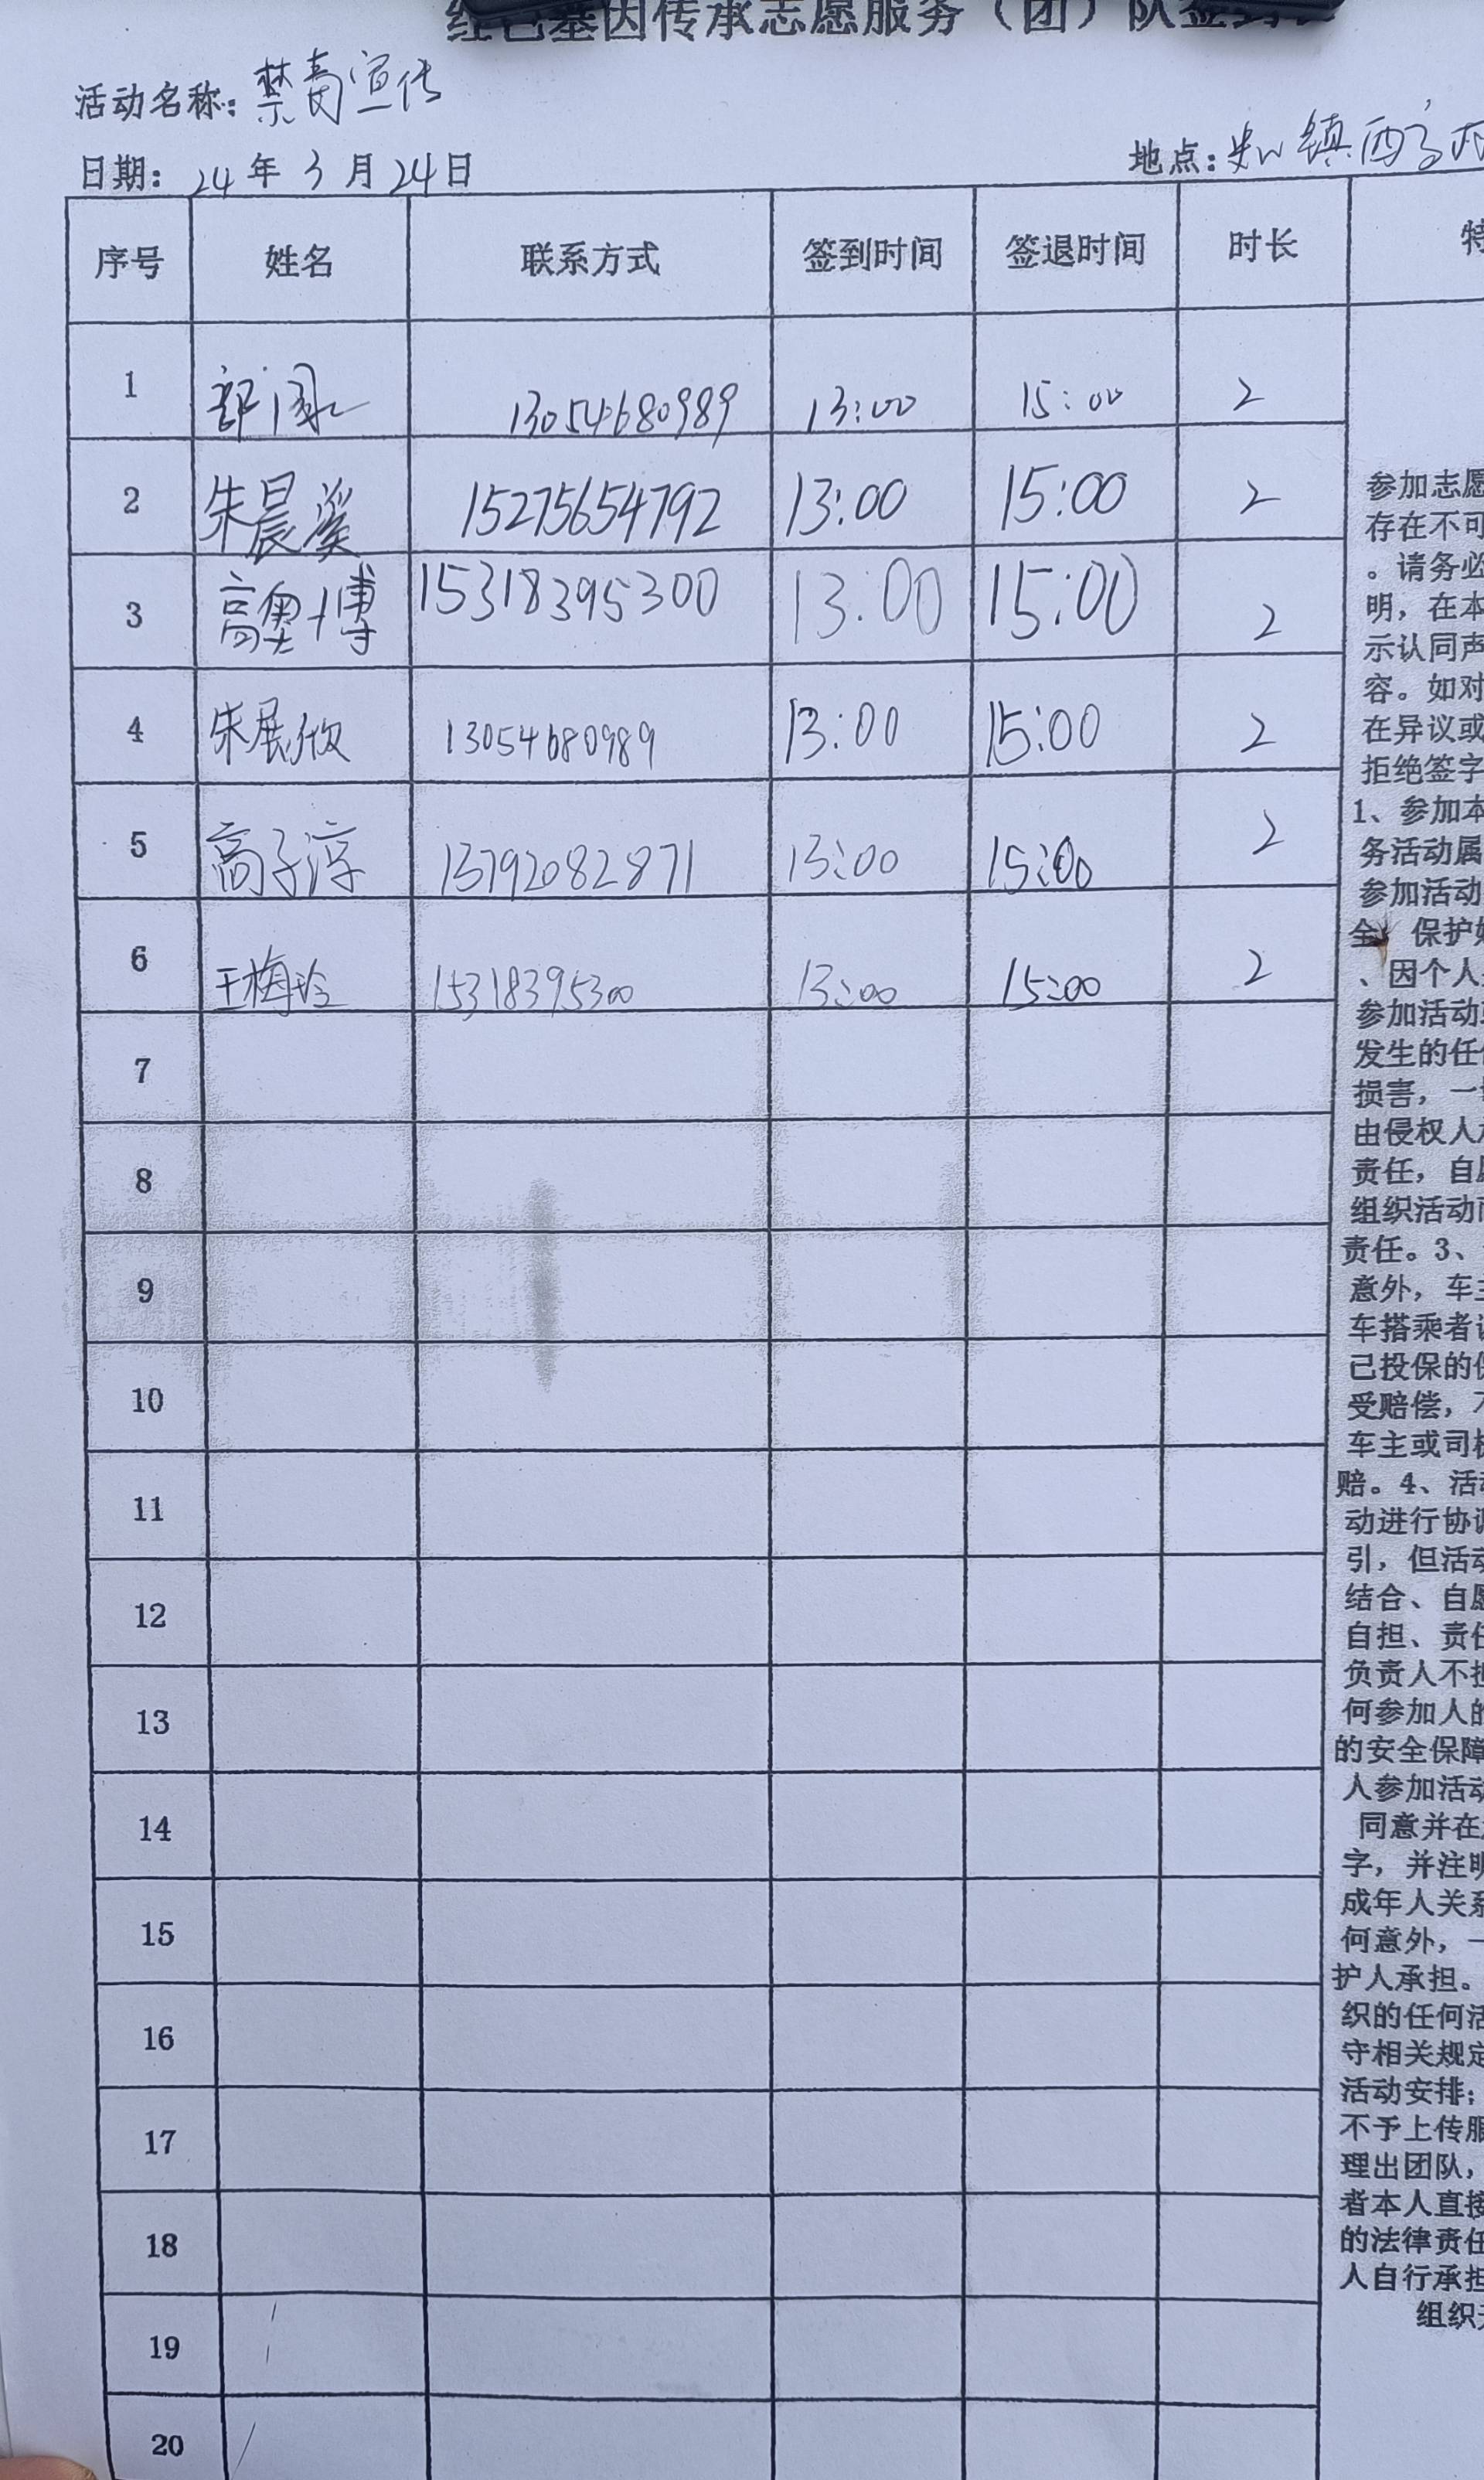 红色基因传承志愿服务（团）队签到表
活动名称：禁毒宣传
日期：24年3月24日
地点：镇西
序号 姓名 联系方式 签到时间 签退时间 时长 特
1 13054680989 13:00 15:00 2
2 朱晨溪 15275654792 13:00 15:00 2
3 高奥博 15318395300 13:00 15:00 2
4 朱展 13054680989 13:00 15:00 2
5 高子淳 13792082871 13:00 15:00 2
6 王梅玲 15318395300 13:00 15:00 2
7
8
9
10
11
12
13
14
15
16
17
18
19
20
参加志愿
存在不可
。请务必
明，在本
示认同声
容。如对
在异议或
拒绝签字
1、参加本
务活动属
参加活动
全，保护
、因个人
参加活动
发生的任
损害，一
由侵权人
责任，自愿
组织活动
责任。3、
意外，车主
车搭乘者
己投保的保
受赔偿，不
车主或司机
赔。4、活动
动进行协调
引，但活动
结合、自愿
自担、责任
负责人不担
何参加人的
的安全保障
人参加活动
同意并在
字，并注明
成年人关系
何意外，一
护人承担。
织的任何活
守相关规定
活动安排；
不予上传服
理出团队，
者本人直接
的法律责任
人自行承担
组织